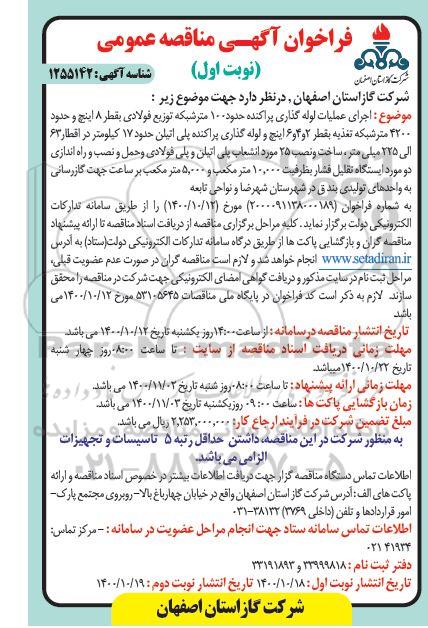 فراخوان آگهی مناقصه عمومی
(نوبت اول)
شناسه آگهی: ۱۲۵۵۱۴۲
شرکت گاز استان اصفهان
شرکت گاز استان اصفهان , در نظر دارد جهت موضوع زیر :
موضوع : اجرای عملیات لوله گذاری پراکنده حدود ۱۰۰ متر شبکه توزیع فولادی بقطر ۸ اینچ و حدود
۴۲۰۰ متر شبکه تغذیه بقطر ۲و۴و۶ اینچ و لوله گذاری پراکنده پلی اتیلن حدود ۱۷ کیلومتر در اقطار ۶۳
الی ۲۲۵ میلی متر ، ساخت و نصب ۲۵ مورد انشعاب پلی اتیلن و پلی فولادی وحمل و نصب و راه اندازی
دو مورد ایستگاه تقلیل فشار بظرفیت ۱۰,۰۰۰ متر مکعب و ۵,۰۰۰ متر مکعب بر ساعت جهت گازرسانی
به واحدهای تولیدی بند ق در شهرستان شهرضا و نواحی تابعه
به شماره فراخوان (۲۰۰۰۰۹۱۱۳۸۰۰۰۱۸۹) مورخ (۱۴۰۰/۱۰/۱۲) را از طریق سامانه تدارکات
الکترونیکی دولت برگزار نماید . کلیه مراحل برگزاری مناقصه از دریافت اسناد مناقصه تا ارائه پیشنهاد
مناقصه گران و بازگشایی پاکت ها از طریق درگاه سامانه تدارکات الکترونیکی دولت(ستاد) به آدرس
www.setadiran.ir انجام خواهد شد و لازم است مناقصه گران در صورت عدم عضویت قبلی،
مراحل ثبت نام در سایت مذکور و دریافت گواهی امضای الکترونیکی جهت شرکت در مناقصه را محقق
سازند. لازم به ذکر است کد فراخوان در پایگاه ملی مناقصات ۵۳۱۰۵۶۴۵ مورخ ۱۴۰۰/۱۰/۱۲ می
باشد
تاریخ انتشار مناقصه در سامانه : از ساعت ۱۴:۰۰ روز یکشنبه تاریخ ۱۴۰۰/۱۰/۱۲ می باشد.
مهلت زمانی دریافت اسناد مناقصه از سایت : تا ساعت ۰۸:۰۰ روز چهار شنبه
تاریخ ۱۴۰۰/۱۰/۲۲ میباشد.
مهلت زمانی ارائه پیشنهاد: تا ساعت ۰۸:۰۰ روز شنبه تاریخ ۱۴۰۰/۱۱/۰۲ می باشد.
زمان بازگشایی پاکت ها : ساعت ۰۹:۰۰ روز یکشنبه تاریخ ۱۴۰۰/۱۱/۰۳ می باشد.
مبلغ تضمین شرکت در فرآیند ارجاع کار: ۲,۲۵۳,۰۰۰,۰۰۰ ریال می باشد.
به منظور شرکت در این مناقصه، داشتن حداقل رتبه ۵ تاسیسات و تجهیزات
الزامی می باشد.
اطلاعات تماس دستگاه مناقصه گزار جهت دریافت اطلاعات بیشتر در خصوص اسناد مناقصه و ارائه
پاکت های الف : آدرس شرکت گاز استان اصفهان واقع در خیابان چهارباغ بالا- روبروی مجتمع پارک-
امور قراردادها و تلفن (داخلی ۳۷۶۹) ۳۸۱۳۲-۰۳۱
اطلاعات تماس سامانه ستاد جهت انجام مراحل عضویت در سامانه : - مرکز تماس:
۴۱۹۳۴ ۰۲۱
دفتر ثبت نام : ۳۳۹۹۹۸۱۸ و ۳۳۱۹۱۸۹۳
تاریخ انتشار نوبت اول : ۱۴۰۰/۱۰/۱۸ تاریخ انتشار نوبت دوم : ۱۴۰۰/۱۰/۱۹
شرکت گاز استان اصفهان